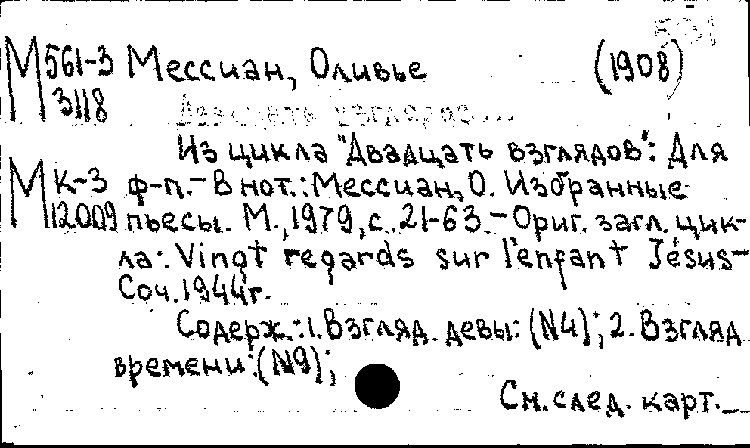 М 561-3 Мессиан, Оливье (1908)
3118 Двадцать взглядов...
Из цикла "Двадцать взглядов": Для
М К-3 ф-п. - В нот.: Мессиан, О. Избранные
12009 пьесы. М., 1979, с. 21-63. - Ориг. загл. цик-
ла: Vingt regards sur l'enfant Jésus-
Соч. 1944г.
Содерж.: 1. Взгляд девы: (N4); 2. Взгляд
времени: (N9);
См. след. карт.